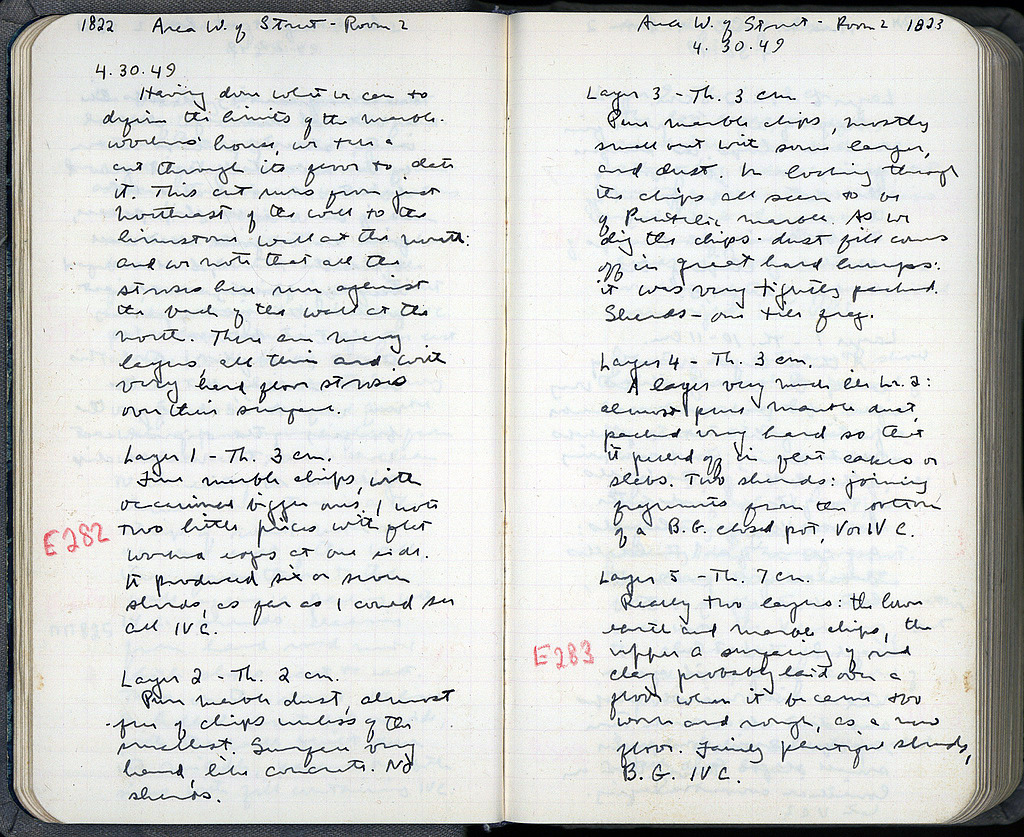 1822 Area W. of Street - Room 2
4.30.49
Having done what we can to
define the limits of the marble-
workers house, we run a
cut through its floor to date
it. This cut runs from just
northeast of the well to the
limestone wall at the north:
and we note that all the
stroses here run against
the back of the wall at the
north. There are many
layers, all thin and with
very hard floor stroses
over their surface.
Layer 1 - Th. 3 cm.
Fine marble chips, with
occasional bigger ones, I note
two little pieces with flat
worked edges at one side.
It produced six or seven
sherds, as far as I could see
all IV C.
E282
Layer 2 - Th. 2 cm.
Pure marble dust, almost
free of chips unless of the
smallest. Surface very
hard, like concrete. No
sherds.
Area W. of Street - Room 2 1823
4.30.49
Layer 3 - Th. 3 cm.
Pure marble chips, mostly
small but with some larger,
and dust. In looking through
the chips all seem to be
of Pentelic marble. As we
dig the chips-dust fill comes
off in great hard lumps:
it was very tightly packed.
Sherds - one tile frag.
Layer 4 - Th. 3 cm.
A layer very much like Lr. 2:
almost pure marble dust,
packed very hard so that
it peeled off in flat cakes or
slabs. Two sherds: joining
fragments from the bottom
of a B.G. closed pot, V or IV C.
Layer 5 - Th. 7 cm.
Really two layers: the lower
earth and marble chips, the
upper a surfacing of red
clay probably laid over a
floor when it became too
worn and rough, as a new
floor. Fairly plentiful sherds,
B.G. IV C.
E283